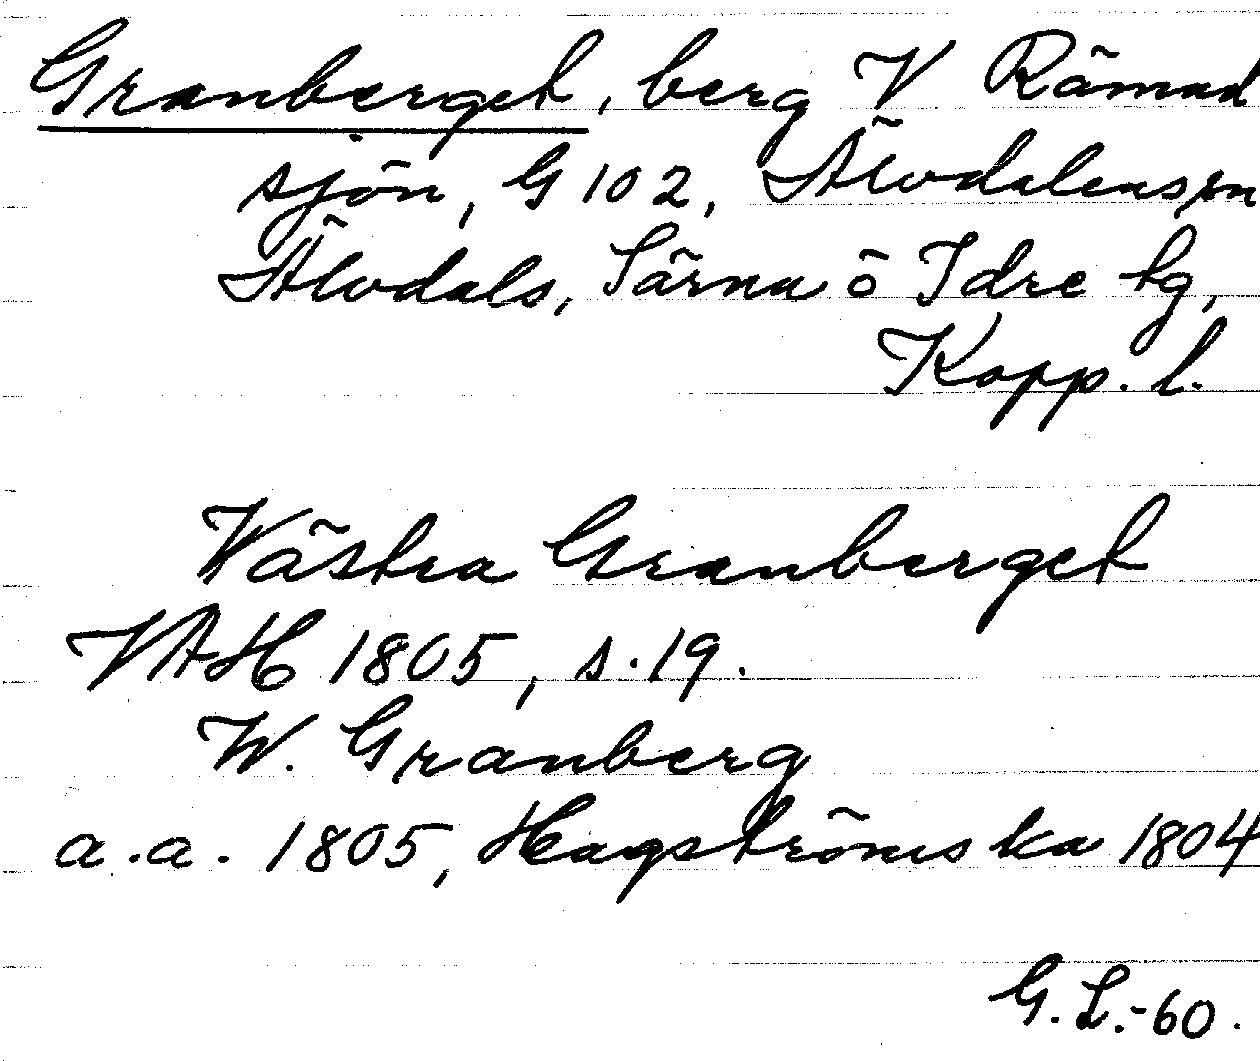 Granberget, berg V Rämad
sjön, G 102, Älvdalens sn
Älvdals, Särna o Idre tg,
Kopp. l.
Västra Granberget
VAH 1805, s. 19.
W. Granberg
a.a. 1805, Hagströmska 1804
G. L. -60.